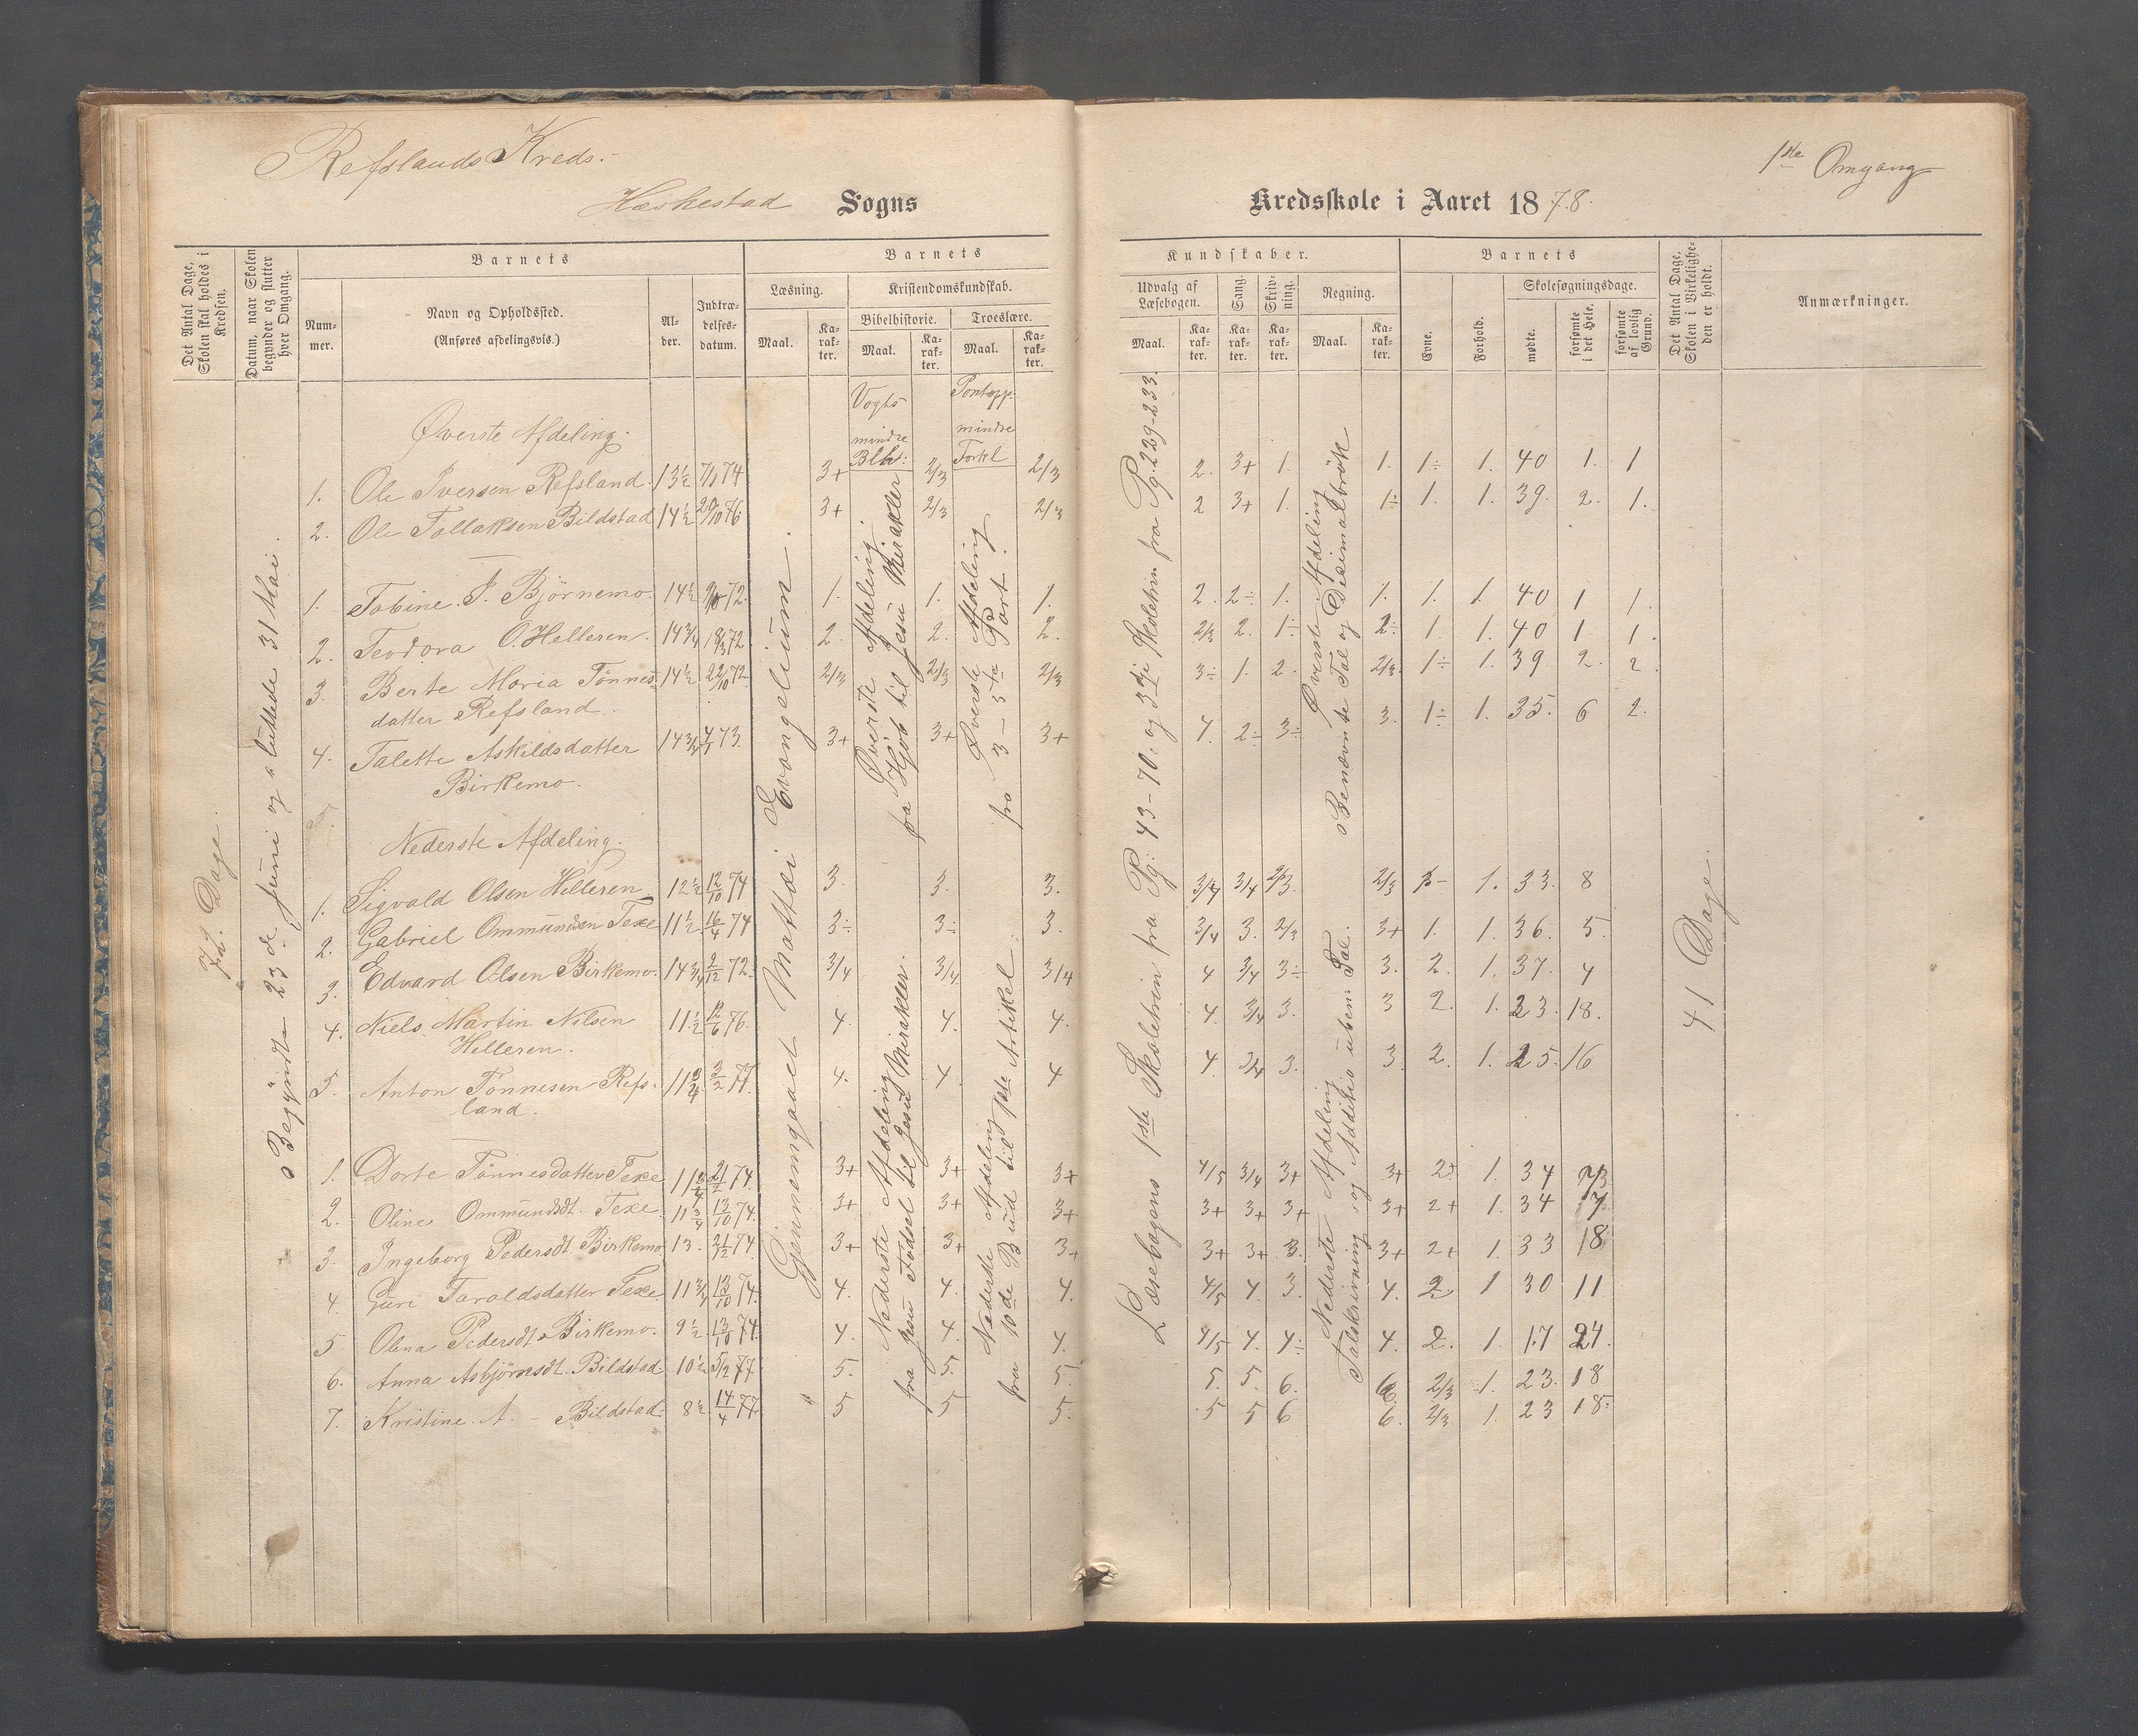 Refslands Kreds.
Heskestad Sogns
Kredsskole i Aaret 1878.
1ste Omgang
Det Antal Dage, Skolen skal holdes i Kredsen.
Datum, naar Skolen begynder og slutter hver Omgang.
Barnets
Nummer.
Navn og Opholdssted.
(Anføres afdelingsvis.)
Alder.
Indtrædelsesdatum.
Barnets
Læsning.
Maal.
Karakter.
Kristendomskundskab.
Bibelhistorie.
Maal.
Karakter.
Troeslære.
Maal.
Karakter.
Kundskaber.
Udvalg af Læsebogen.
Maal.
Karakter.
Sang.
Karakter.
Skrivning.
Karakter.
Regning.
Maal.
Karakter.
Barnets
Evne.
Forhold.
Skolesøgningsdage.
mødte.
forsømte i det Hele.
forsømte af lovlig Grund.
Det Antal Dage, Skolen i Virkeligheden er holdt.
Anmærkninger.
72. Dage.
Begyndte 23de Juni og sluttede 31 Mai.
Gjennemgaaet Mattæi Evangelium.
Vogts mindre Blh:
Pontopp: mindre Forkl
Øverste Afdeling fra Hjob til Jesu Mirakler
Øverste Afdeling fra 3 - 5te Part.
Nederste Afdeling fra Jesu Fødsel til Jesu Mirakler.
Nederste Afdeling fra 10de Bud til 1ste Artikel.
Læsebogens 1ste Skoletrin fra Pg. 43-70. og 3die Skoletrin fra Pg. 229-233.
Øverste Afdeling Benævnte Tal og Desimalbrøk
Nederste Afdeling Talskrivning og Additio uben: Tal.
41 Dage.
Øverste Afdeling.
1. Ole Iversen Refsland. 13½ 7/1 74 3+ 2/3 2/3 2. 3+ 1. 1. 1÷ 1. 40 1. 1
2. Ole Tollaksen Bildstad 14½ 20/10 76 3+ 2/3 2/3 2 3+ 1. 1÷ 1. 1. 39. 2. 1.
1. Tobine. J. Bjørnemo. 14½ 9/10 72. 1. 1. 1. 2. 2÷ 1. 1. 1. 1. 40 1 1.
2. Teodora O. Helleren. 14¾ 18/3 72. 2. 2. 2. 2/3 2. 1÷ 2÷ 1. 1. 40 1 1.
3. Berte Maria Tønnes-
datter Refsland. 14½ 22/10 72 2/3 2/3 2/3 3÷ 1. 2. 2/3. 1÷ 1. 39 2. 2.
4. Talette Askildsdatter
Birkemo. 14¾ 73. 3+ 3+ 3+ 4. 2÷ 3÷ 3. 1÷ 1. 35. 6 2.
5.
Nederste Afdeling.
1. Sigvald Olsen Helleren 12½ 12/10 74 3. 3. 3. 3/4 3/4 2/3. 2/3 1. 33. 8
2. Gabriel Ommundsen Texe 11½ 16/4 74 3÷ 3÷ 3. 3/4 3. 2/3 3+ 1. 1. 36. 5.
3. Edvard Olsen Birkemo. 14¾ 2/12 72. 3/4 3/4 3/4 4 3/4 3÷ 3. 2. 1. 37. 4
4. Niels Martin Nilsen
Helleren. 11½ 12/6 76. 4. 4. 4. 4. 3/4 3. 3 2. 1. 23. 18.
5. Anton Tønnesen Refs-
land. 11¾ 3/2 77. 4. 4. 4 4. 3/4 3. 3. 2. 1. 25. 16
1. Dorte Tønnesdatter Texe 11¾ 21/2 74. 3+ 3+ 3+ 4/5 3/4 3+ 3+ 2+ 1. 34
2. Oline Ommundsdt. Texe. 11¾ 13/10 74. 3+ 3+ 3+ 3+ 3+ 3+ 3+ 2+ 1. 34 7
3. Ingeborg Pedersdt. Birkemo. 13. 21/12 74. 3+ 3+ 3+ 3+ 3+ 3. 3+ 2+ 1. 33 18
4. Guri Taraldsdatter Texe. 11¾ 13/10 74. 4. 4. 4. 4/5 4. 3. 4. 2 1 30 11
5 Olena Pedersdt. Birkemo. 9½ 13/10 74. 4. 4. 4. 4/5 4. 4÷ 4. 2. 1. 17 24.
6. Anna Asbjørnsdt. Bildstad. 10½ 5/2 77 5. 5. 5. 5. 5. 6. 6. 2/3 1. 23. 18
7. Kristine. A. - Bildstad. 8½ 14/4 77. 5 5 5. 5 5 6 6. 2/3. 1. 23 18.